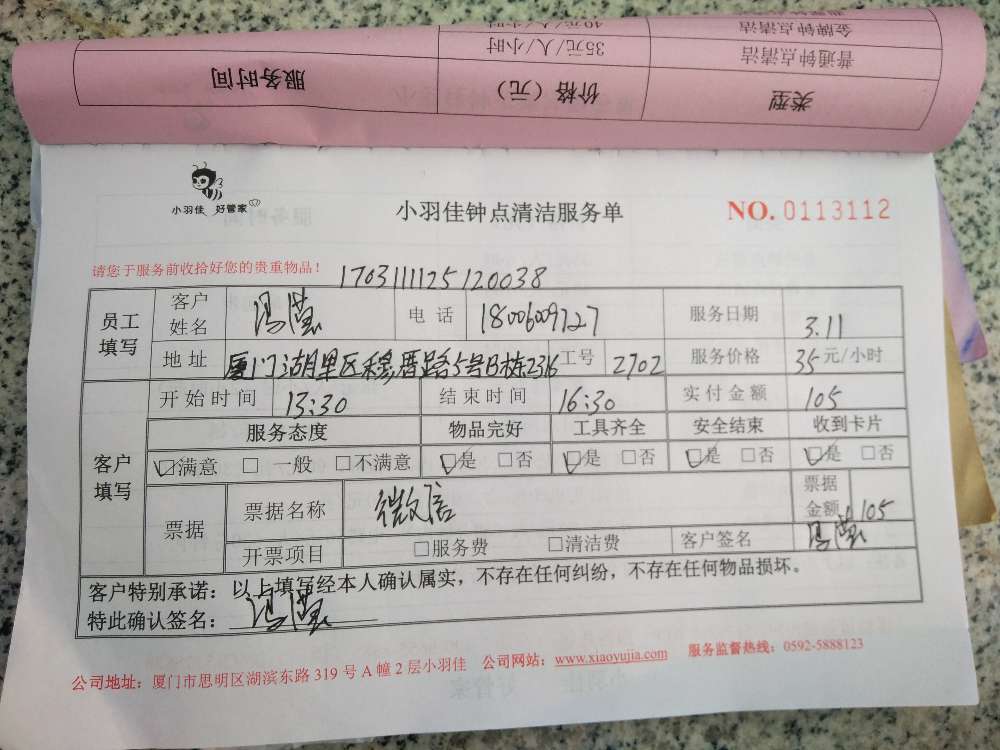 40元/人/小时 金牌钟点清洁
35元/人/小时 普通钟点清洁
服务时间 价格（元） 类型
小羽佳 好管家
小羽佳钟点清洁服务单
NO. 0113112
请您于服务前收拾好您的贵重物品！
1703111125120038
员工填写 客户姓名 冯滢 电话 18006009727 服务日期 3.11
地址 厦门湖里区穆厝路5号B栋2316 工号 2702 服务价格 35元/小时
客户填写 开始时间 13:30 结束时间 16:30 实付金额 105
服务态度 物品完好 工具齐全 安全结束 收到卡片
☑满意 □ 一般 □不满意 ☑是 □否 ☑是 □否 ☑是 □否 ☑是 □否
票据 票据名称 微信 票据金额 105
开票项目 □服务费 □清洁费 客户签名 冯滢
客户特别承诺：以上填写经本人确认属实，不存在任何纠纷，不存在任何物品损坏。
特此确认签名：冯滢
公司地址：厦门市思明区湖滨东路 319 号 A 幢 2 层小羽佳 公司网站：www.xiaoyujia.com 服务监督热线：0592-5888123